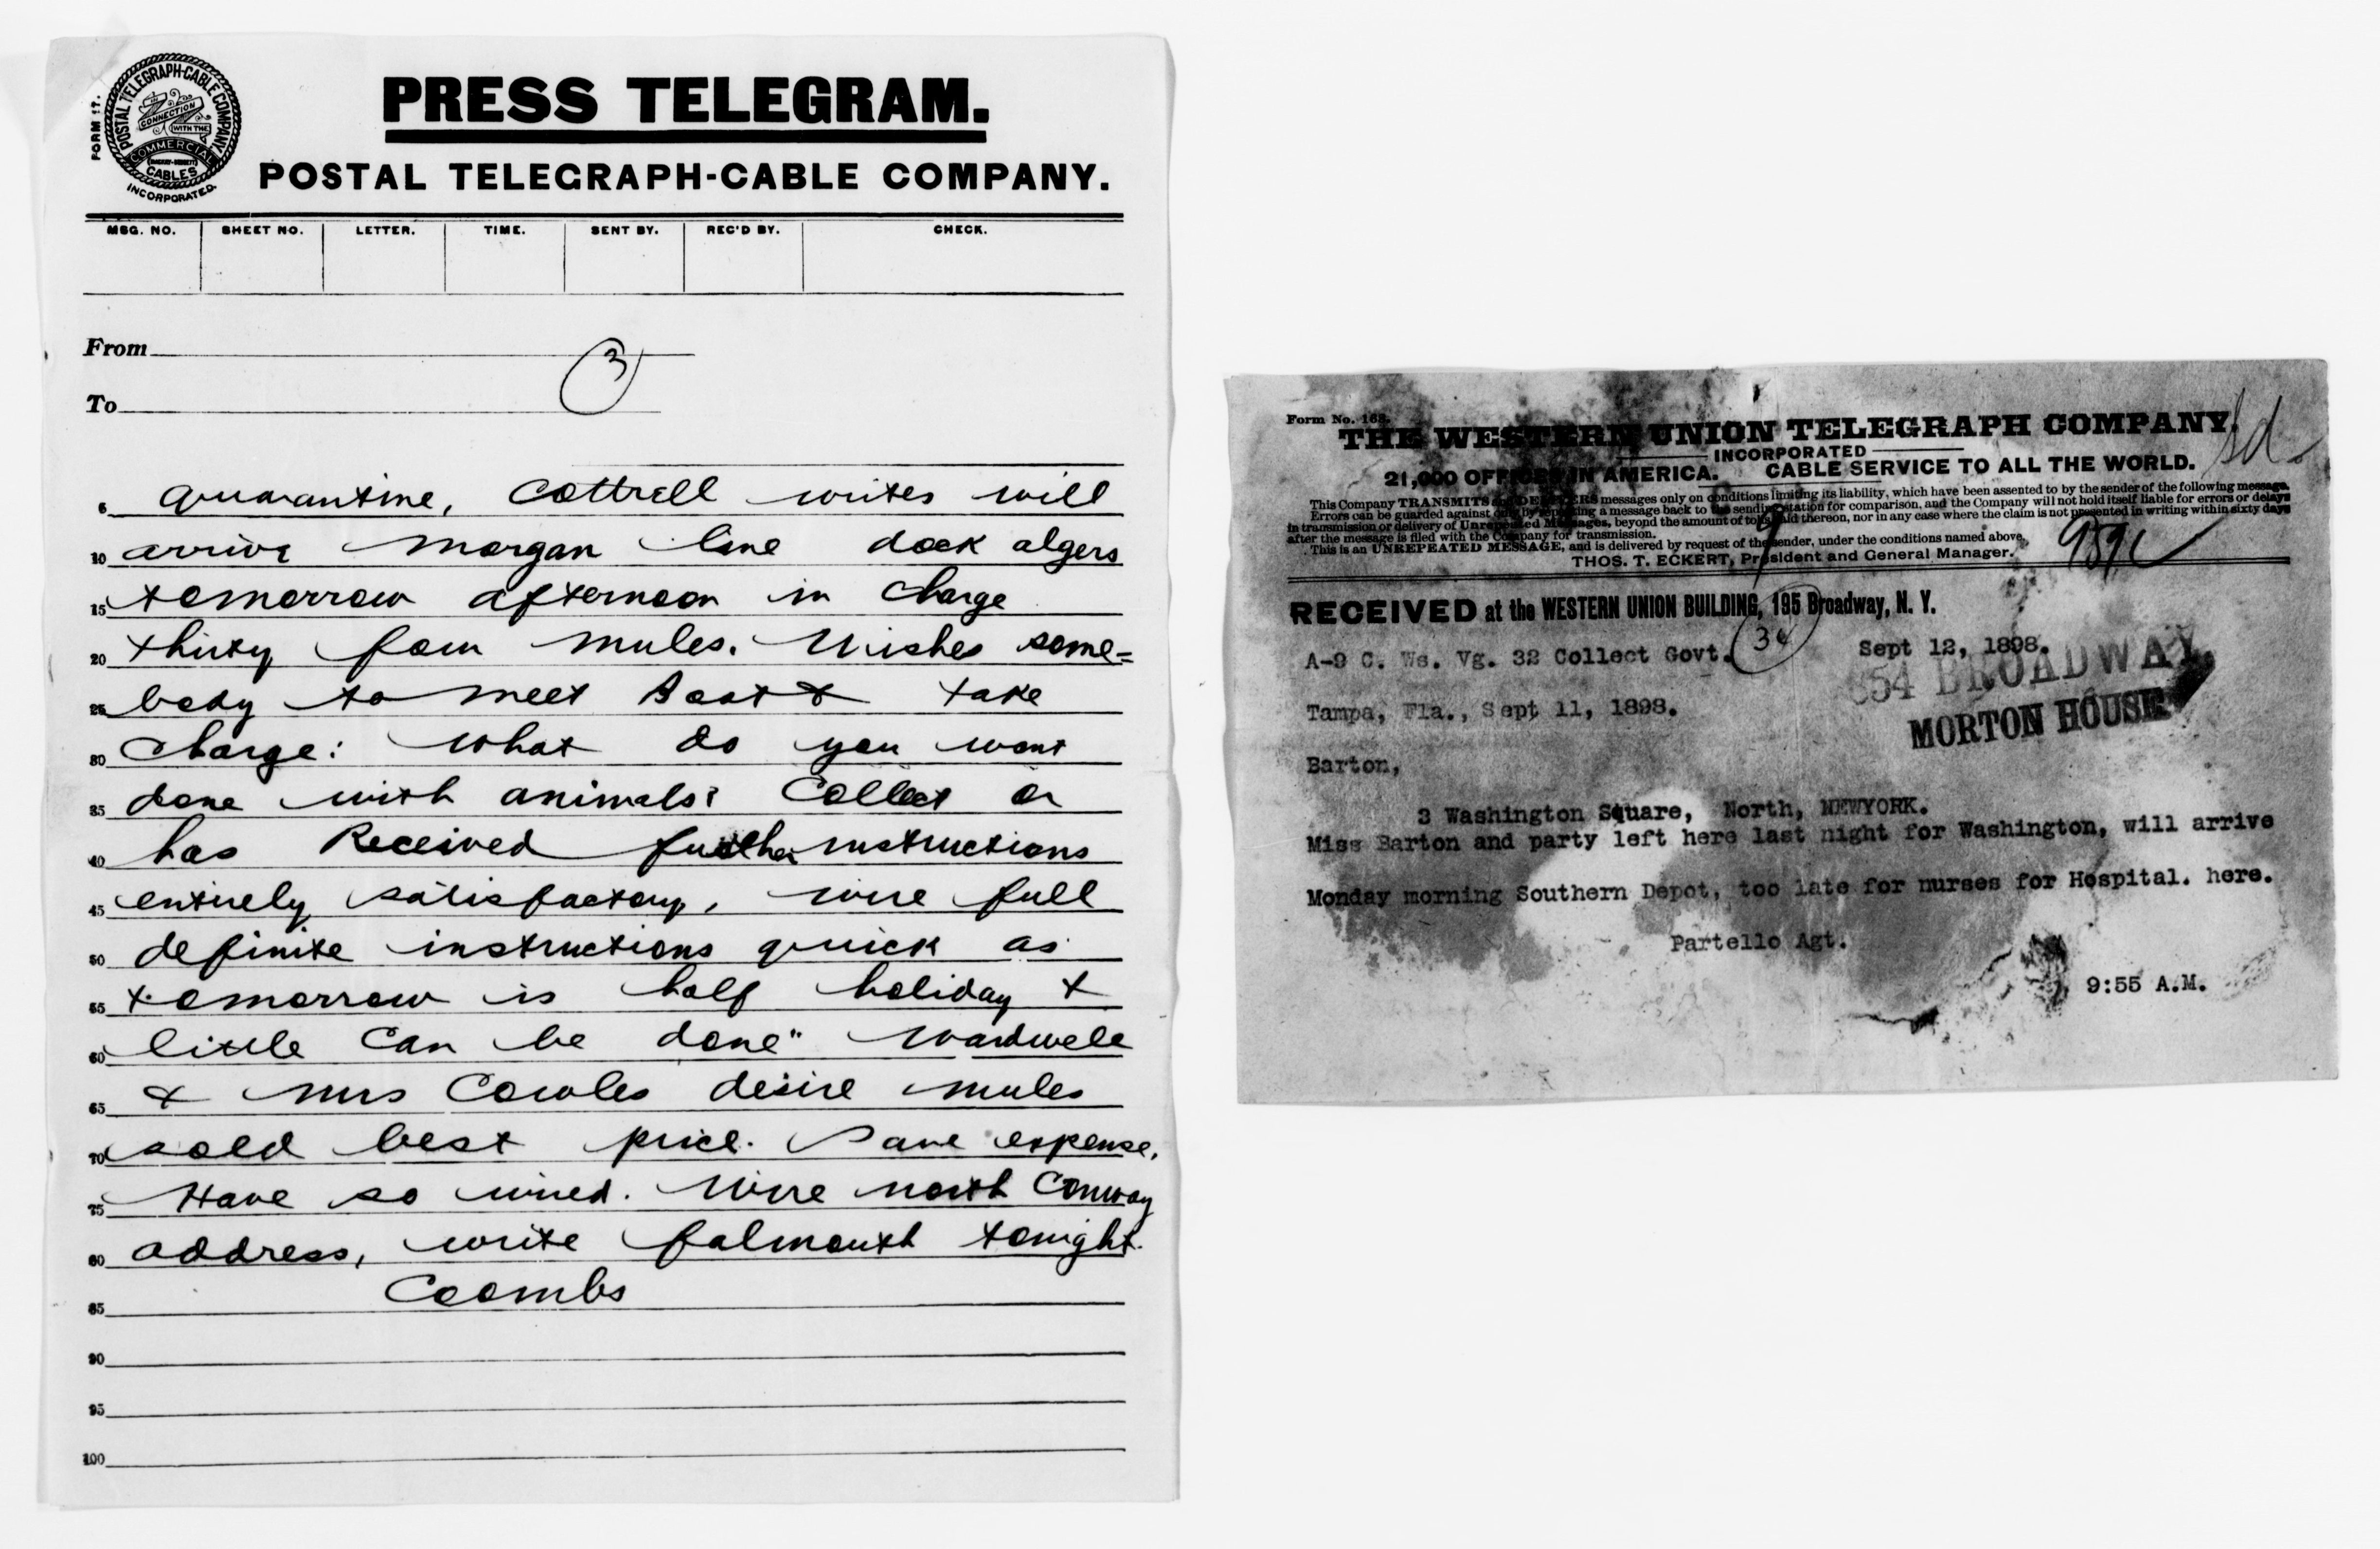 FORM 17.
POSTAL TELEGRAPH-CABLE COMPANY
IN CONNECTION WITH THE
COMMERCIAL
CABLES
INCORPORATED.
PRESS TELEGRAM.
POSTAL TELEGRAPH-CABLE COMPANY.
MSG. NO. SHEET NO. LETTER. TIME. SENT BY. REC'D BY. CHECK.
From
3
To
5 quarantine, Cottrell writes will
10 arrive Morgan line dock algers
15 tomorrow afternoon in charge
20 thirty four mules. Wishes some=
25 body to meet Boat & take
30 charge: What do you want
35 done with animals? Collect or
40 has Received further instructions
45 entirely satisfactory, wire full
50 definite instructions quick as
55 tomorrow is half holiday &
60 little can be done" Wardwell
65 & Mrs Cowles desire mules
70 sold best price. Save expense.
75 Have so wired. Wire north Conway
80 address, write falmouth tonight.
85 Coombs
90
95
100
Form No. 168.
THE WESTERN UNION TELEGRAPH COMPANY.
INCORPORATED
21,000 OFFICES IN AMERICA. CABLE SERVICE TO ALL THE WORLD.
This Company TRANSMITS and DELIVERS messages only on conditions limiting its liability, which have been assented to by the sender of the following message.
Errors can be guarded against only by repeating a message back to the sending station for comparison, and the Company will not hold itself liable for errors or delays
in transmission or delivery of Unrepeated Messages, beyond the amount of tolls paid thereon, nor in any case where the claim is not presented in writing within sixty days
after the message is filed with the Company for transmission.
This is an UNREPEATED MESSAGE, and is delivered by request of the sender, under the conditions named above.
THOS. T. ECKERT, President and General Manager.
RECEIVED at the WESTERN UNION BUILDING, 195 Broadway, N. Y.
A-9 C. Ws. Vg. 32 Collect Govt. Sept 12, 1898.
854 BROADWAY
MORTON HOUSE
Tampa, Fla., Sept 11, 1898.
Barton,
3 Washington Square, North, NEWYORK.
Miss Barton and party left here last night for Washington, will arrive
Monday morning Southern Depot, too late for nurses for Hospital. here.
Partello Agt.
9:55 A.M.